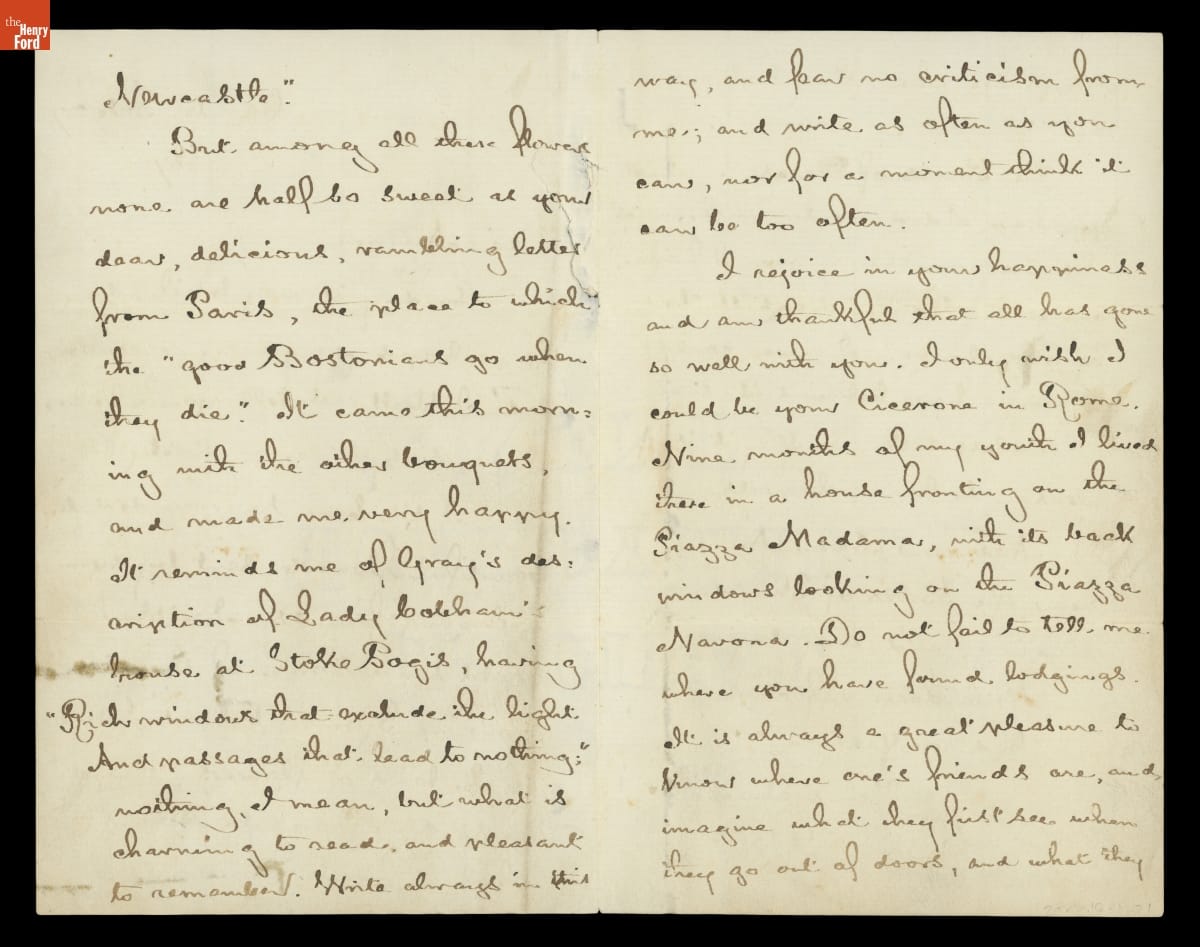 the
Henry
Ford
Newcastle."
But among all these flowers
none are half so sweet as your
dear, delicious, rambling letter
from Paris, the place to which
the "good Bostonians go when
they die." It came this morn=
ing with the other bouquets,
and made me very happy.
It reminds me of Gray's des=
cription of Lady Cobham's
house at Stoke Pogis, having
"Rich windows that exclude the light
And passages that lead to nothing;"
nothing, I mean, but what is
charming to read, and pleasant
to remember. Write always in this
way, and fear no criticism from
me; and write as often as you
can, nor for a moment think it
can be too often.
I rejoice in your happiness
and am thankful that all has gone
so well with you. I only wish I
could be your Cicerone in Rome.
Nine months of my youth I lived
there in a house fronting on the
Piazza Madama, with its back
windows looking on the Piazza
Navona. Do not fail to tell me
where you have found lodgings.
It is always a great pleasure to
know where one's friends are, and
imagine what they first see when
they go out of doors, and what they